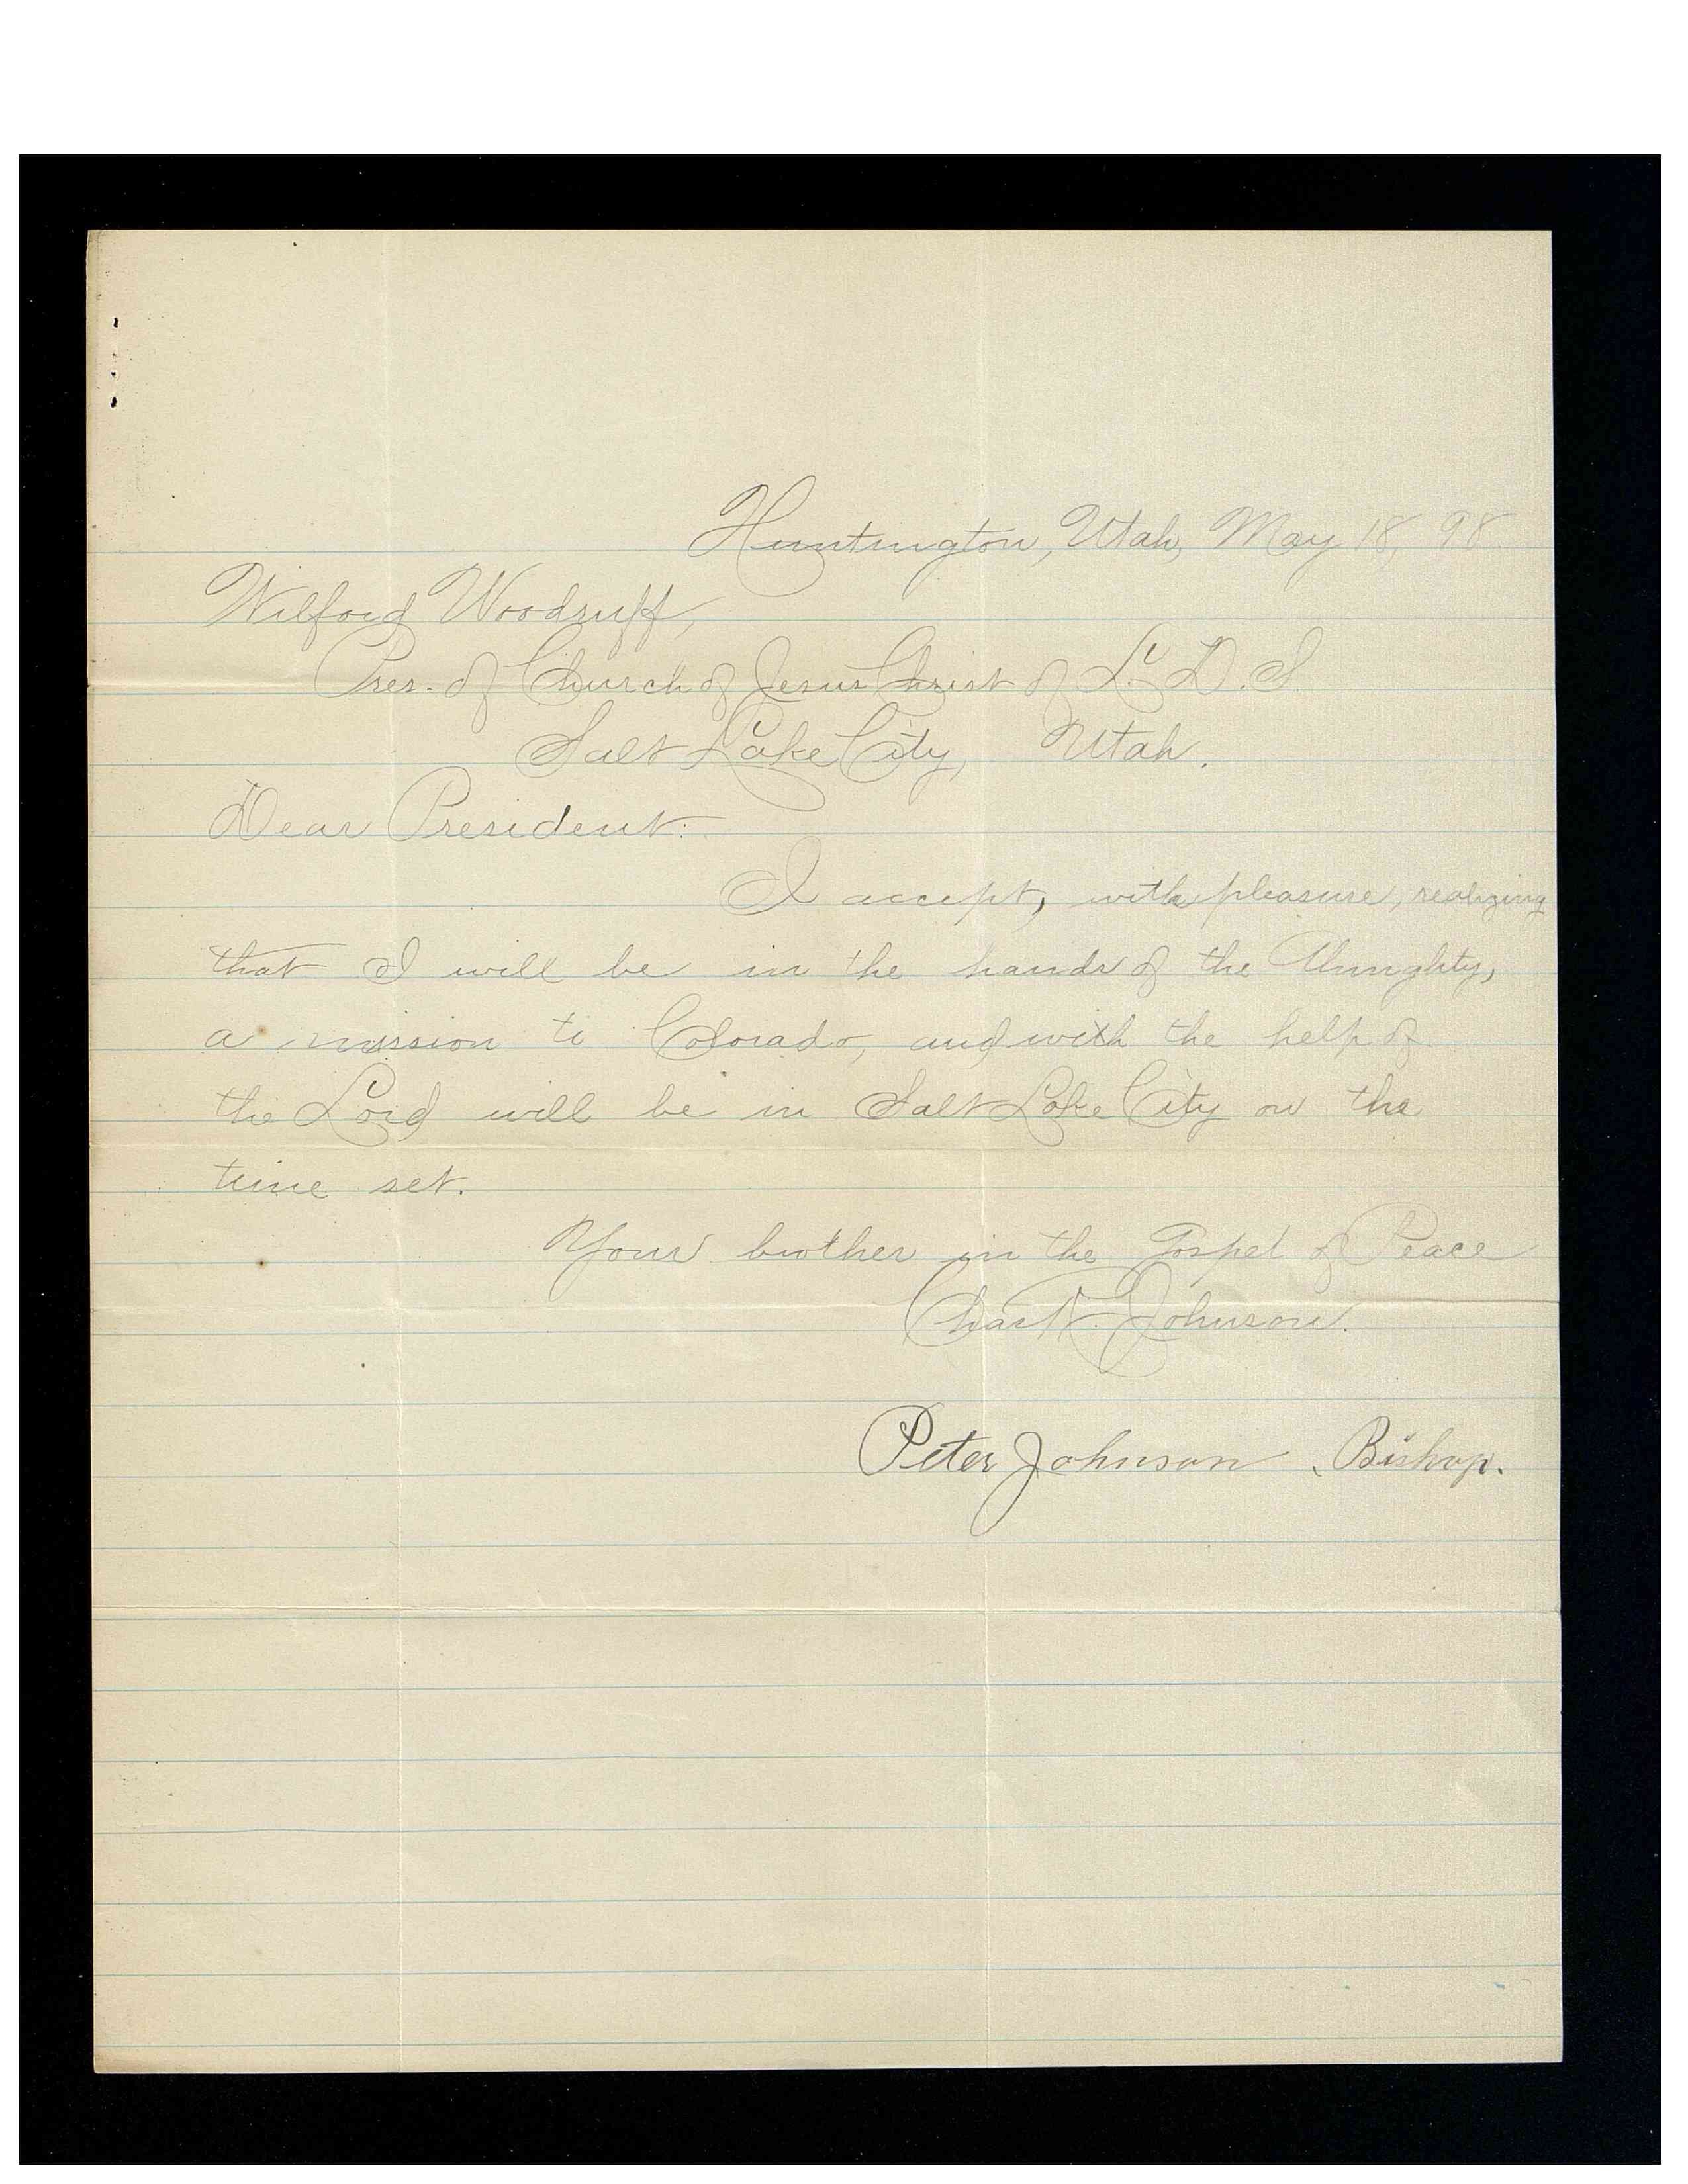 Huntington, Utah, May 18, 98.
Wilford Woodruff,
Pres. of Church of Jesus Christ of L. D. S.
Salt Lake City, Utah.
Dear President:
I accept, with pleasure, realizing
that I will be in the hands of the Almighty,
a mission to Colorado, and with the help of
the Lord will be in Salt Lake City on the
time set.
Your brother in the Gospel of Peace
Chas Johnson.
Peter Johnson, Bishop.